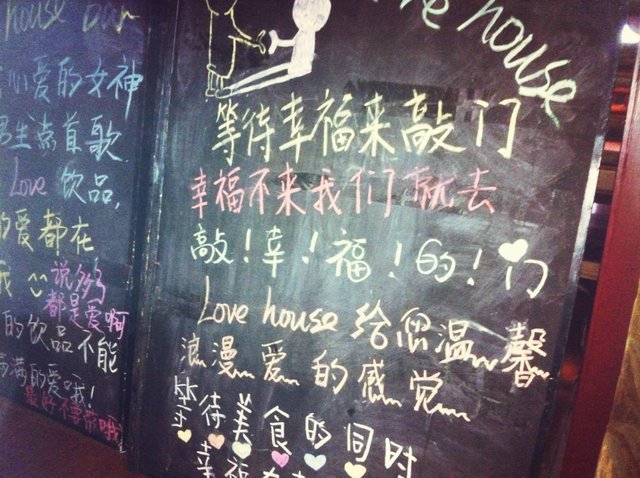 house bar
心爱的女神
男生点首歌
Love 饮品,
的爱都在
我
说多了
都是爱啊
的饮品不能
满满的爱哦!
最好不要带哦
house
等待幸福来敲门
幸福不来我们就去
敲!幸!福!的!门
Love house 给您温~馨~
浪漫~爱~的感~觉~
等待美食的同时
幸福